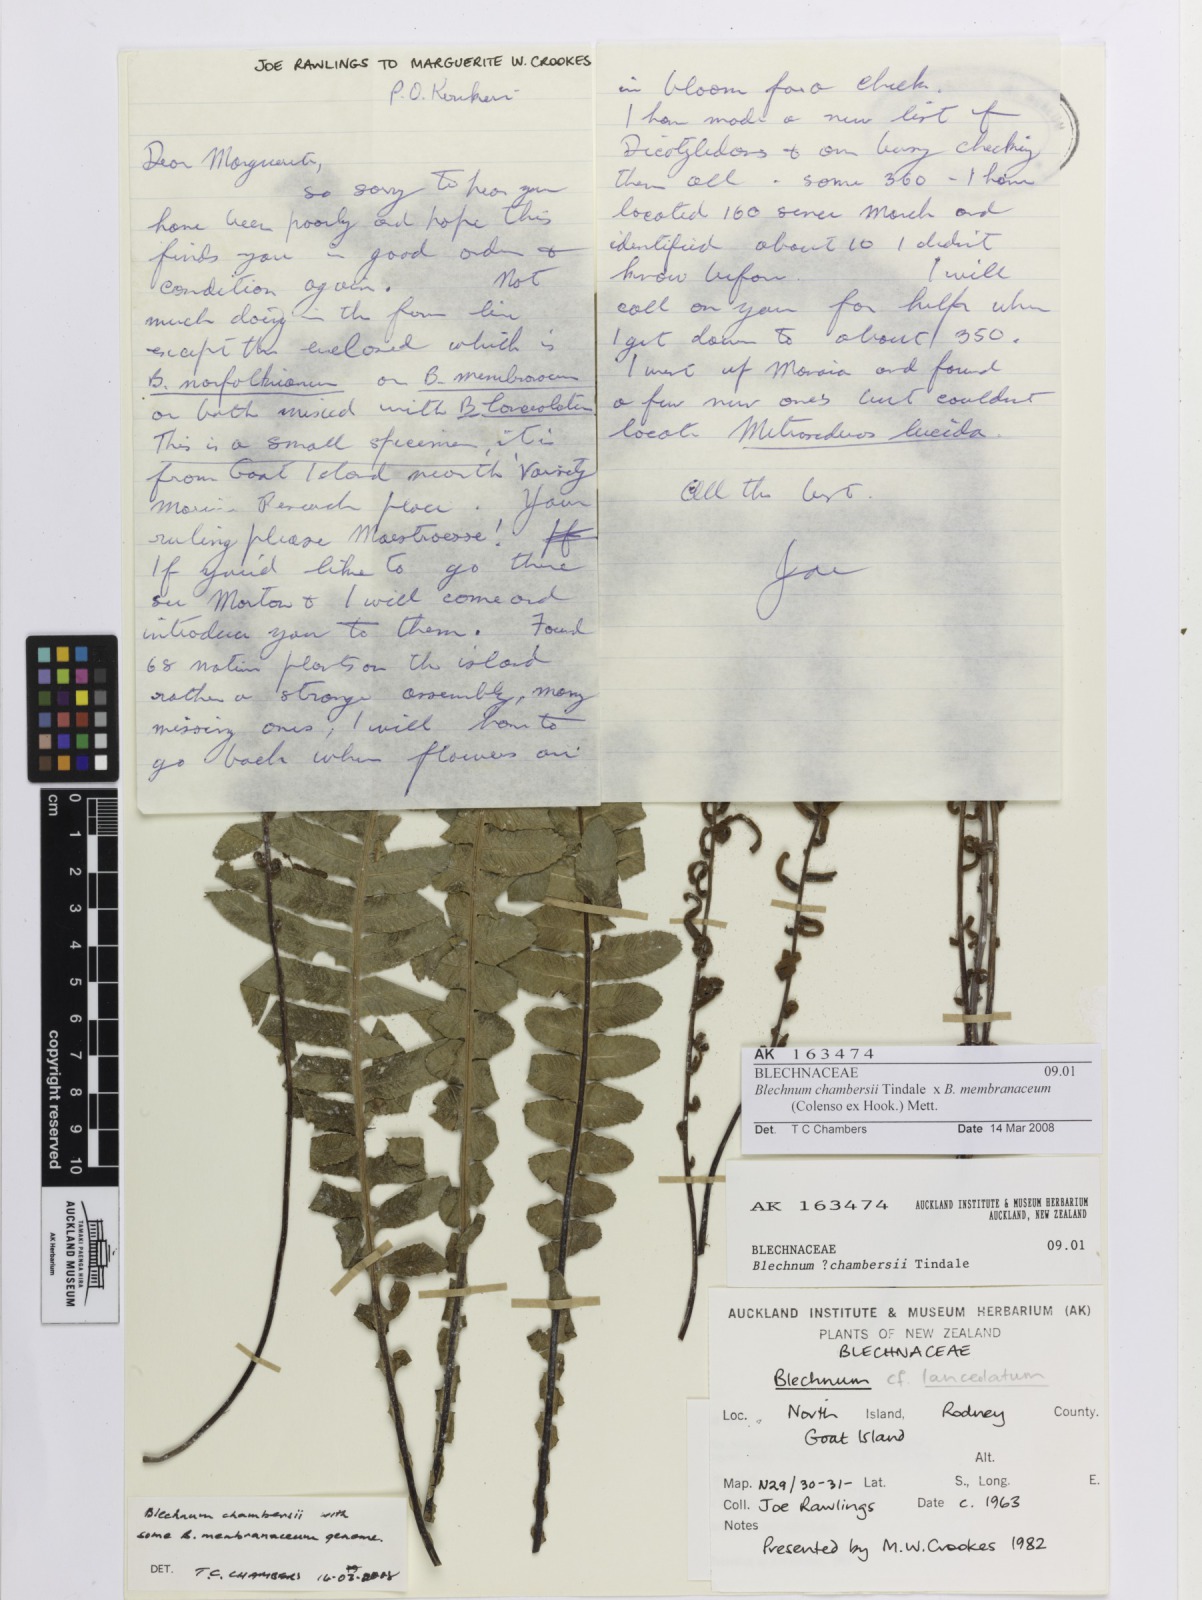 JOE RAWLINGS TO MARGUERITE W. CROOKES
P.O. Kaukapakapa
Dear Marguerite,
so sorry to hear you
have been poorly and hope this
finds you in good order &
condition again. Not
much doing in the fern line
except the enclosed which is
B. norfolkianum or B. membranaceum
or both mixed with B. lanceolatum
This is a small specimen, it is
from Goat Island near th' Varsity
Marine Research place. Your
ruling please Maestroesse!
If you'd like to go there
see Morton & I will come and
introduce you to them. Found
68 native plants on the island
rather a strange assembly, many
missing ones; I will have to
go back when flowers are
in bloom for a check.
I have made a new list of
Dicotyledons & am busy checking
them all - some 360 - I have
located 160 since March and
identified about 10 I didn't
know before. I will
call on you for help when
I get down to about 350.
I went up Moraia and found
a few new ones but couldn't
locate Metrosideros lucida.
All the best.
Joe
0
cm
1
2
3
4
5
6
7
8
9
10
copyright reserved
AUCKLAND MUSEUM
TAMAKI PAENGA HIRA
AK Herbarium
AK 163474
BLECHNACEAE 09.01
Blechnum chambersii Tindale x B. membranaceum
(Colenso ex Hook.) Mett.
Det. T C Chambers Date 14 Mar 2008
AK 163474 AUCKLAND INSTITUTE & MUSEUM HERBARIUM
AUCKLAND, NEW ZEALAND
BLECHNACEAE 09.01
Blechnum ?chambersii Tindale
AUCKLAND INSTITUTE & MUSEUM HERBARIUM (AK)
PLANTS OF NEW ZEALAND
BLECHNACEAE
Blechnum cf. lanceolatum
Loc. North Island, Rodney County.
Goat Island
Alt.
Map. N29/30-31- Lat. S., Long. E.
Coll. Joe Rawlings Date c. 1963
Notes
Presented by M.W. Crookes 1982
Blechnum chambersii with
some B. membranaceum genome.
DET. T.C. CHAMBERS